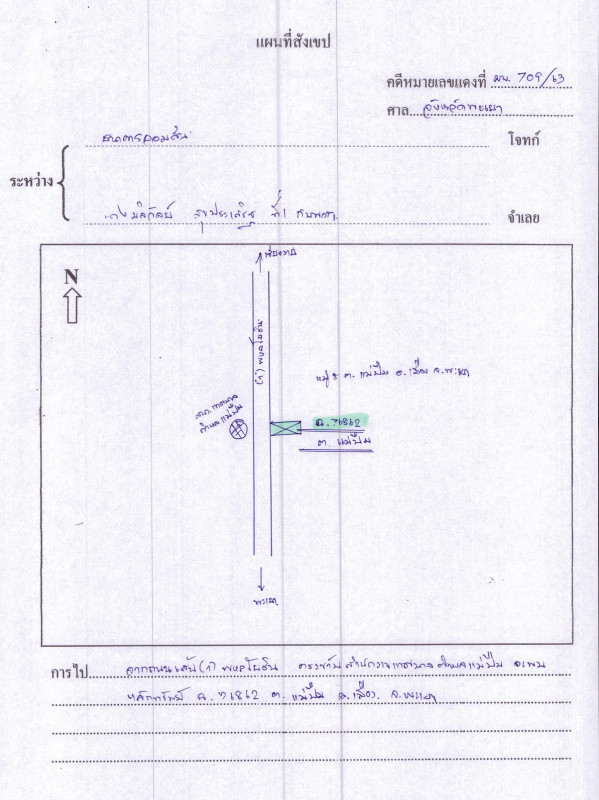 แผนที่สังเขป
คดีหมายเลขแดงที่ ผบ. 709/63
ศาล จังหวัดพะเยา
ธนาคารออมสิน โจทก์
ระหว่าง
ที่ 1 กับพวก จำเลย
N
เชียงราย
(ถ) พหลโยธิน
หมู่ 8 ต. แม่ปืม อ. เมือง จ. พะเยา
สนง. เทศบาล
ตำบลแม่ปืม
ฉ. 76862
ต. แม่ปืม
พะเยา
การไป จากถนนเส้น (ถ) พหลโยธิน ตรงข้ามสำนักงานเทศบาลตำบลแม่ปืม จะพบ
หลักทรัพย์ ฉ. 76862 ต. แม่ปืม อ. เมือง จ. พะเยา